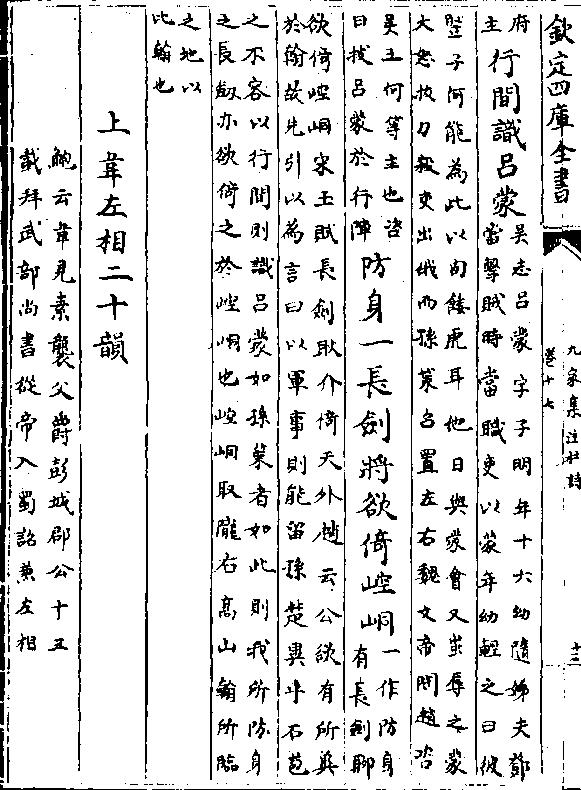 欽定四庫全書
九家集注杜詩
卷十七
十三
府
主
行間識呂蒙
吳志呂蒙字子明年十六幼隨姊夫鄧
當擊賊時當職吏以蒙年幼輕之曰彼
豎子何能為此以肉餧虎耳他日與蒙會又蚩辱之蒙
大怒拔刀殺吏出城而孫策召置左右魏文帝問趙咨
吳王何等主也咨
曰拔呂蒙於行陣
防身一長劍將欲倚崆峒
一作防身
有長劍聊
欲倚崆峒宋玉賦長劍耿介倚天外趙云公欲有所與
於翰故先引以為言曰以軍事則能留孫楚與乎石苞
之不容以行間則識呂蒙如孫策者如此則我所防身
之長劔亦欲倚之於崆峒也崆峒取隴右髙山翰所臨
之地以
比翰也
上韋左相二十韻
鮑云韋見素襲父爵彭城郡公十五
載拜武部尚書從帝入蜀詔兼左相